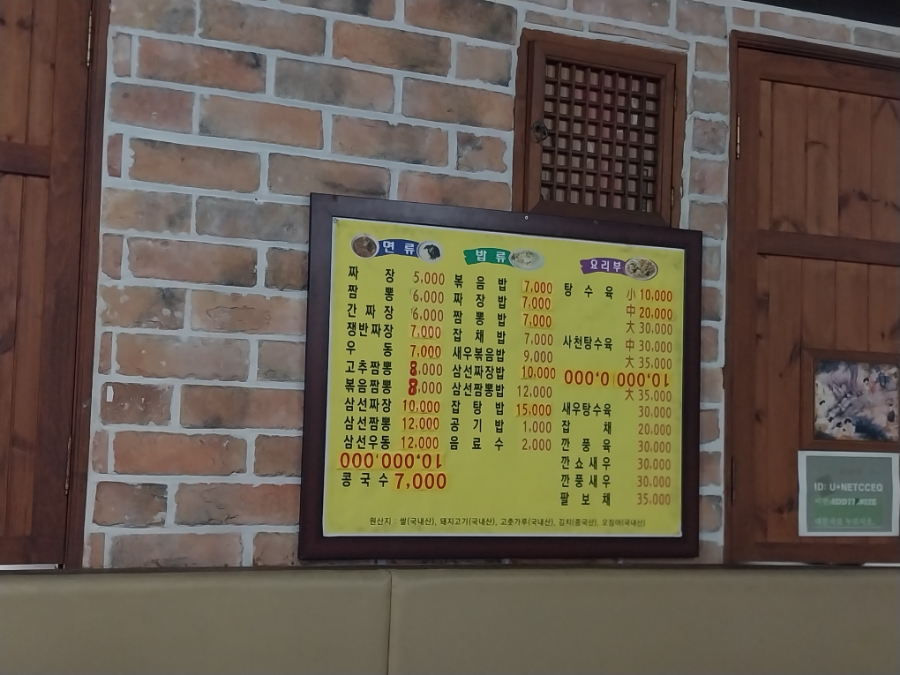 면 류
짜 장 5,000
짬 뽕 6,000
간 짜 장 6,000
쟁반짜장 7,000
우 동 7,000
고추짬뽕 8,000
볶음짬뽕 8,000
삼선짜장 10,000
삼선짬뽕 12,000
삼선우동 12,000
콩 국 수 7,000
밥 류
볶 음 밥 7,000
짜 장 밥 7,000
짬 뽕 밥 7,000
잡 채 밥 7,000
새우볶음밥 9,000
삼선짜장밥 10,000
삼선짬뽕밥 12,000
잡 탕 밥 15,000
공 기 밥 1,000
음 료 수 2,000
요리부
탕 수 육 小 10,000
中 20,000
大 30,000
사천탕수육 中 30,000
大 35,000
大 35,000
새우탕수육 30,000
잡 채 20,000
깐 풍 육 30,000
깐 쇼 새 우 30,000
깐 풍 새 우 30,000
팔 보 채 35,000
원산지 : 쌀(국내산), 돼지고기(국내산), 고춧가루(국내산), 김치(중국산), 오징어(국내산)
ID: U+NETCCEQ